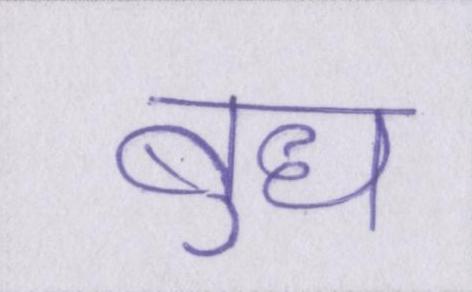 बुध